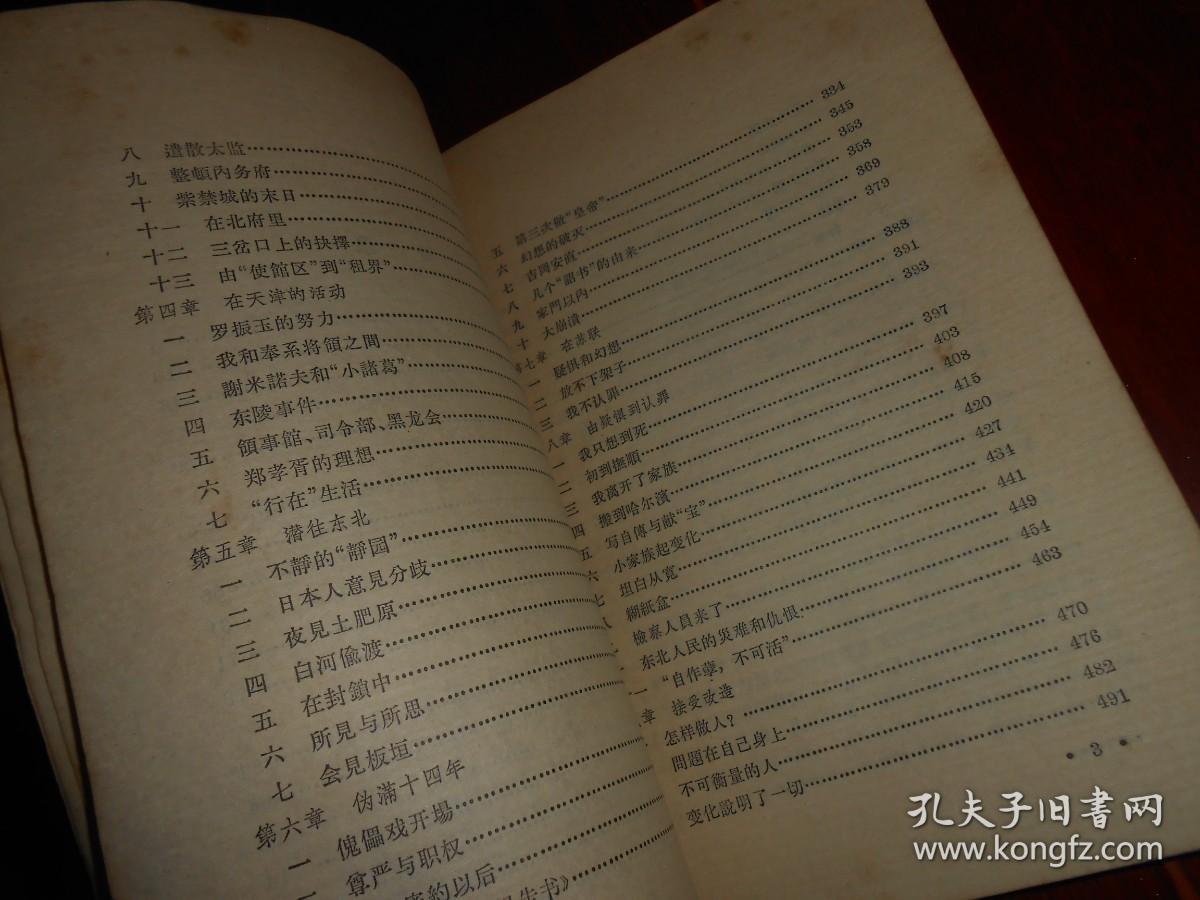 八 遣散太监
九 整頓內务府
十 紫禁城的末日
十一 在北府里
十二 三岔口上的抉擇
十三 由“使館区”到“租界”
第四章 在天津的活动
一 罗振玉的努力
二 我和奉系将領之間
三 謝米諾夫和“小諸葛”
四 东陵事件
五 領事館、司令部、黑龙会
六 郑孝胥的理想
七 “行在”生活
第五章 潛往东北
一 不靜的“靜园”
二 日本人意見分歧
三 夜見土肥原
四 白河偸渡
五 在封鎖中
六 所見与所思
七 会見板垣
第六章 伪滿十四年
一 傀儡戏开場
尊严与职权
約以后
书》
五 第三次做“皇帝” 334
六 幻想的破灭 345
七 吉岡安直 353
八 几个“詔书”的由来 358
九 家門以內 369
十 大崩潰 379
七章 在苏联
一 疑惧和幻想 388
二 放不下架子 391
三 我不认罪 393
八章 由疑惧到认罪
一 我只想到死 397
二 初到撫順 403
三 我离开了家族 408
四 搬到哈尔濱 415
五 写自傳与献“宝” 420
六 小家族起变化 427
七 坦白从宽 434
糊紙盒 441
檢察人員来了 449
东北人民的災难和仇恨 454
“自作孽，不可活” 463
章 接受改造
怎样做人？ 470
問題在自己身上 476
不可衡量的人 482
变化說明了一切 491
• 3 •
孔夫子旧书网
www.kongfz.com